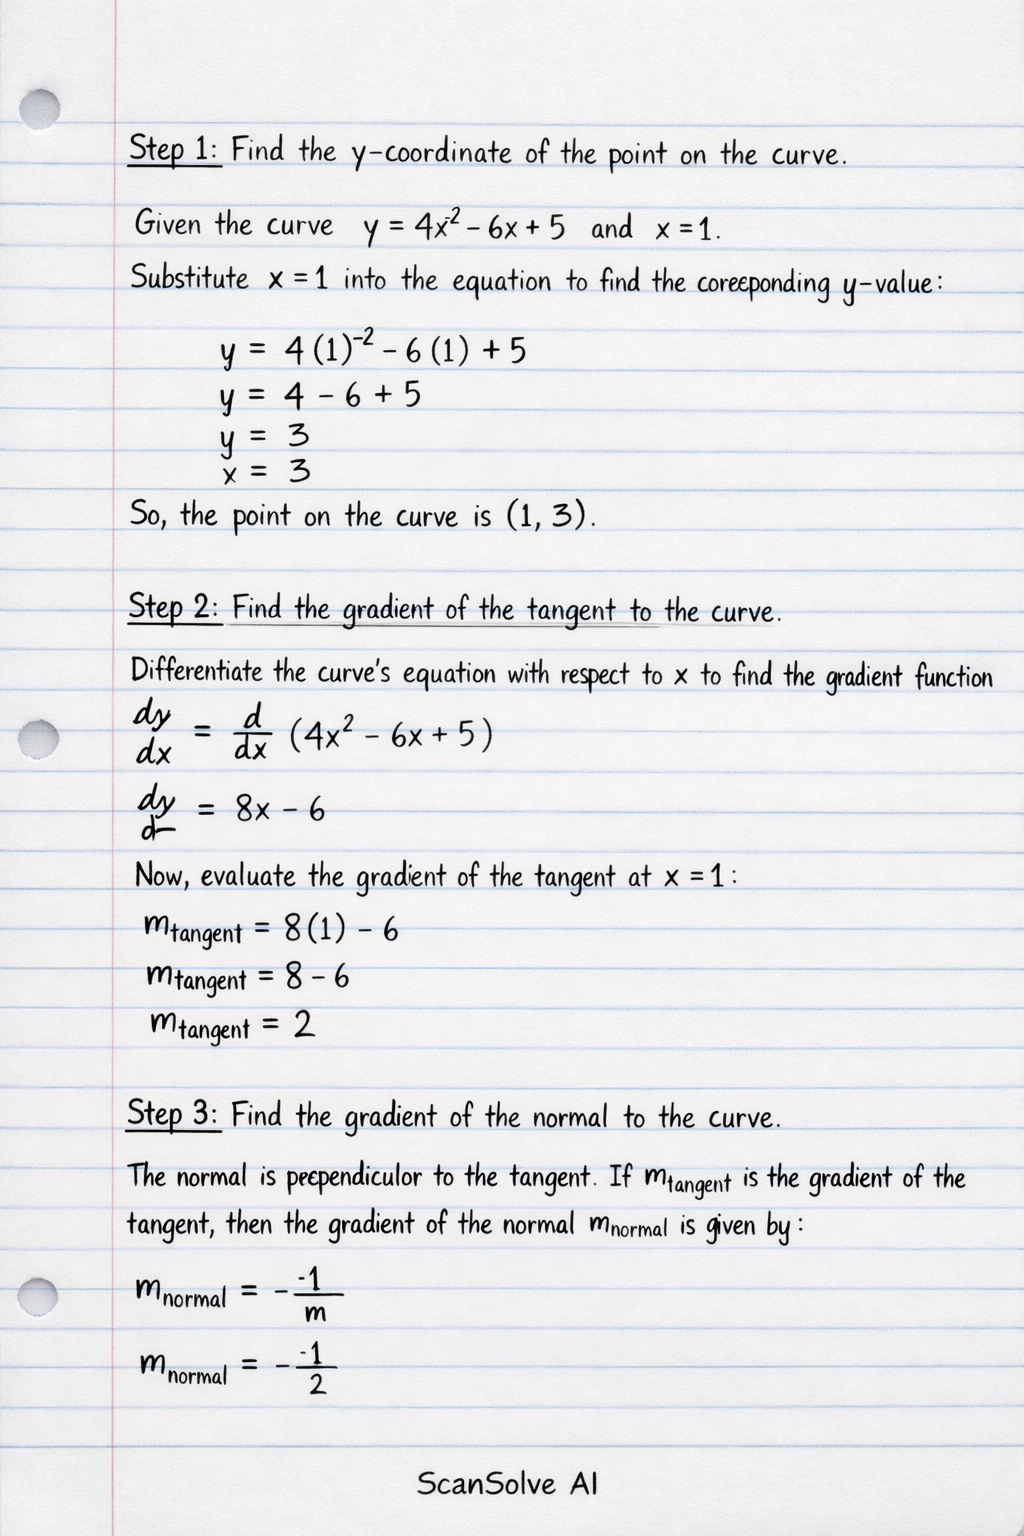 Step 1: Find the y-coordinate of the point on the curve.
Given the curve y = 4x² - 6x + 5 and x = 1.
Substitute x = 1 into the equation to find the coreeponding y-value:
y = 4(1)⁻² - 6(1) + 5
y = 4 - 6 + 5
y = 3
x = 3
So, the point on the curve is (1, 3).
Step 2: Find the gradient of the tangent to the curve.
Differentiate the curve's equation with respect to x to find the gradient function
dy/dx = d/dx (4x² - 6x + 5)
dy/d = 8x - 6
Now, evaluate the gradient of the tangent at x = 1:
m_tangent = 8(1) - 6
m_tangent = 8 - 6
m_tangent = 2
Step 3: Find the gradient of the normal to the curve.
The normal is peependiculor to the tangent. If m_tangent is the gradient of the
tangent, then the gradient of the normal m_normal is given by:
m_normal = - -1/m
m_normal = - -1/2
ScanSolve AI